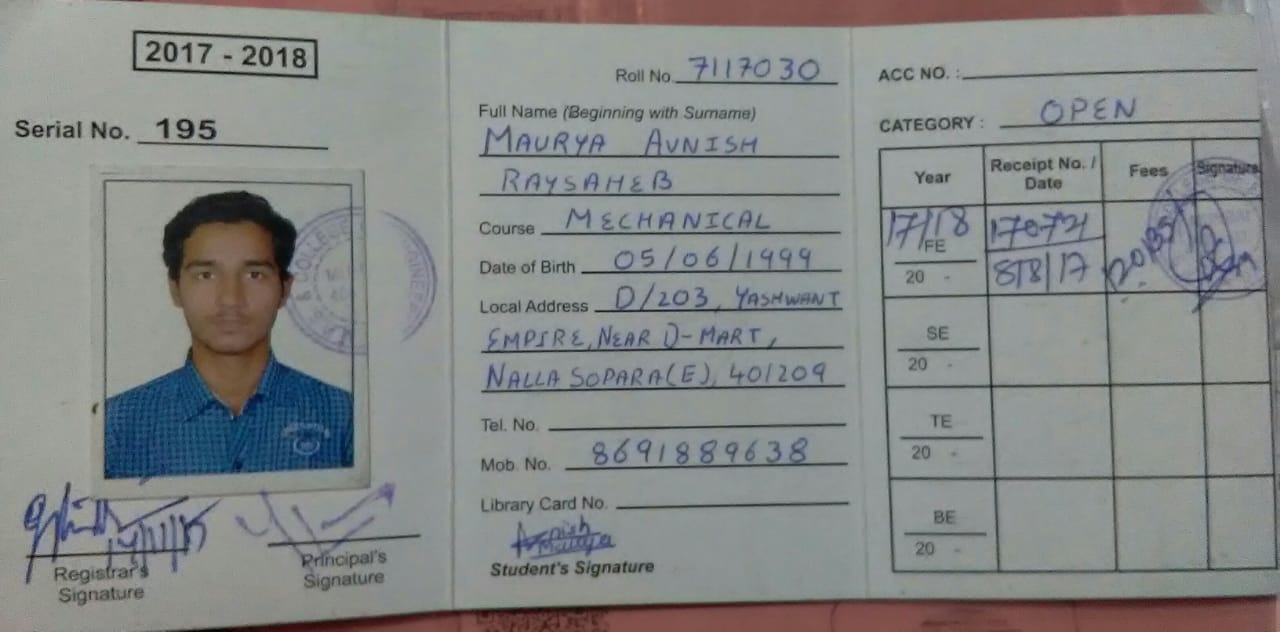 2017 - 2018
Serial No. 195
Registrar's
Signature
Principal's
Signature
Roll No. 7117030
Full Name (Beginning with Surname)
MAURYA AVNISH
RAYSAHEB
Course MECHANICAL
Date of Birth 05/06/1999
Local Address D/203, YASHWANT
EMPIRE, NEAR D-MART,
NALLASOPARA(E), 401209
Tel. No.
Mob. No. 8691889638
Library Card No.
Avnish
Maurya
Student's Signature
ACC NO. :
CATEGORY : OPEN
Year Receipt No. / Date Fees Signature
17/18 FE 20 - 8/8/17
SE 20 -
TE 20 -
BE 20 -